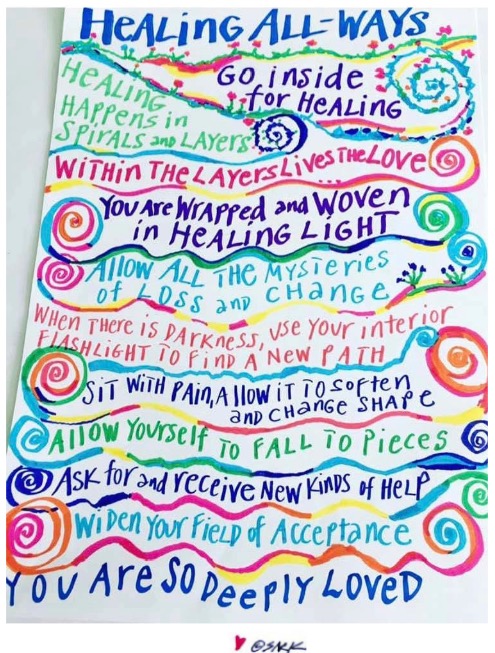 HEALING ALL-WAYS
GO inside
for HEALING
HEALING
HAPPENS in
SPIRALS and LAYERS
WITHIN THE LAYERS Lives THE LOVE...
YOU Are Wrapped and Woven
in HEALING LIGHT
Allow ALL THE Mysteries
of LOSS and CHANGE
WHEN THERE is DARKNESS, USE YOUR interior
FLASHLIGHT TO FIND A New PATH
SiT WITH PAin, Allow iT TO soften
and CHANGE SHAPE
Allow Yourself To FALL To Pieces
ASK for and receive New Kinds of HELP
Widen Your Field of Acceptance
YOU Are SO Deeply LOVED
@SARK